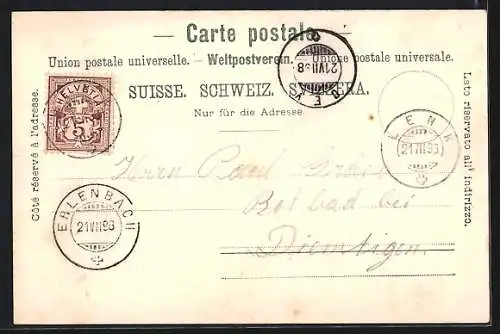 Carte postale.
Union postale universelle. — Weltpostverein. — Unione postale universale.
SUISSE. SCHWEIZ. SVIZZERA.
Nur für die Adresse.
Côté réservé à l'adresse.
Lato riservato all' indirizzo.
HELVETIA
5
21 VII 98
LENK
21 VII 98
ERLENBACH
21 VII 98
Herrn Paul
Botbad bei
Diemtigen.